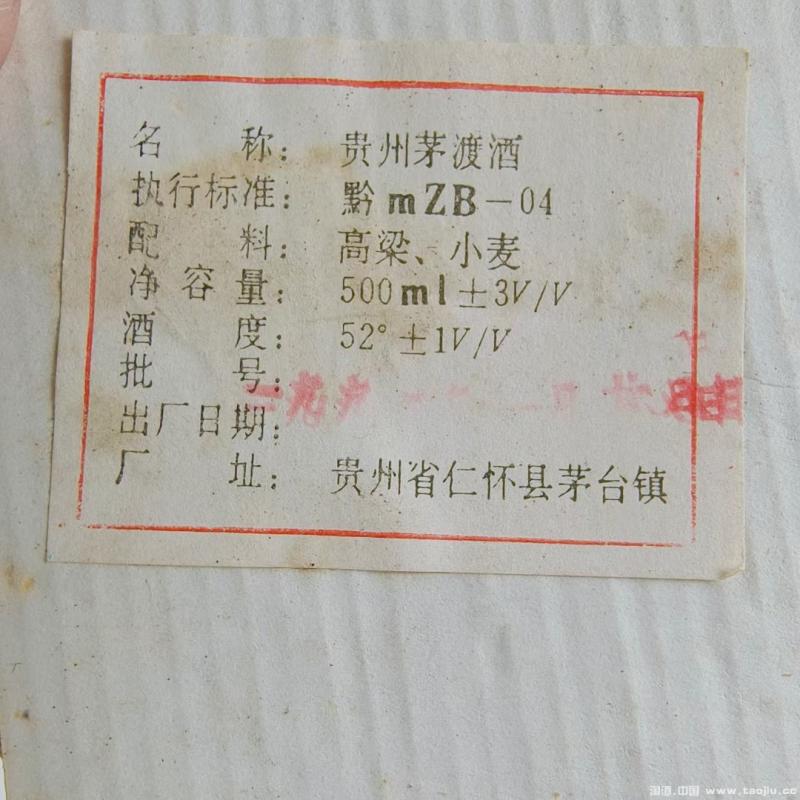 名 称: 贵州茅渡酒
执行标准: 黔mZB-04
配 料: 高梁、小麦
净 容 量: 500ml±3V/V
酒 度: 52°±1V/V
批 号:
出厂日期:
厂 址: 贵州省仁怀县茅台镇
淘酒.中国 www.taojiu.cc